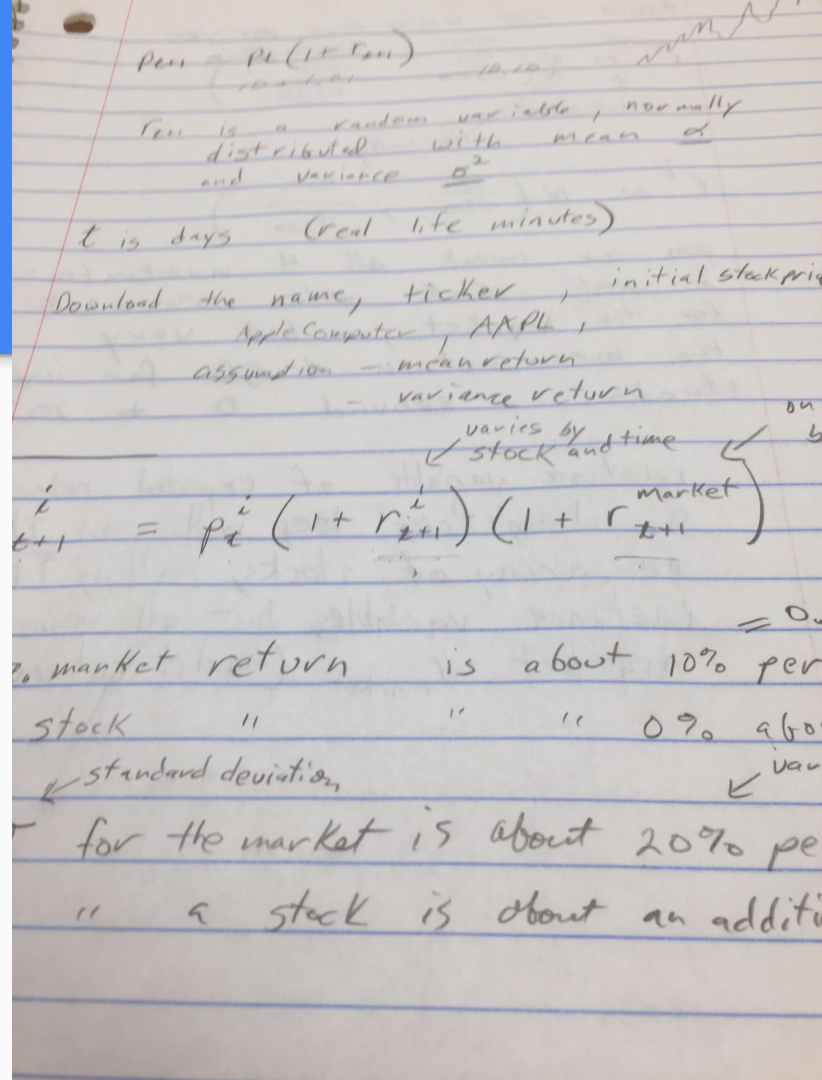 Pt+1 = Pt (1 + rt+1)
rt+1 is a random variable, normally
distributed with mean α
and variance σ²
t is days (real life minutes)
Download the name, ticker, initial stock
Apple Computer, AAPL,
assumption - mean return
variance return
varies by
stock and time
on
i t+1 = p i t (1 + r i t+1) (1 + r market t+1)
= 0.
market return is about 10% per
stock " " " 0%
standard deviation
for the market is about 20%
" a stock is about an